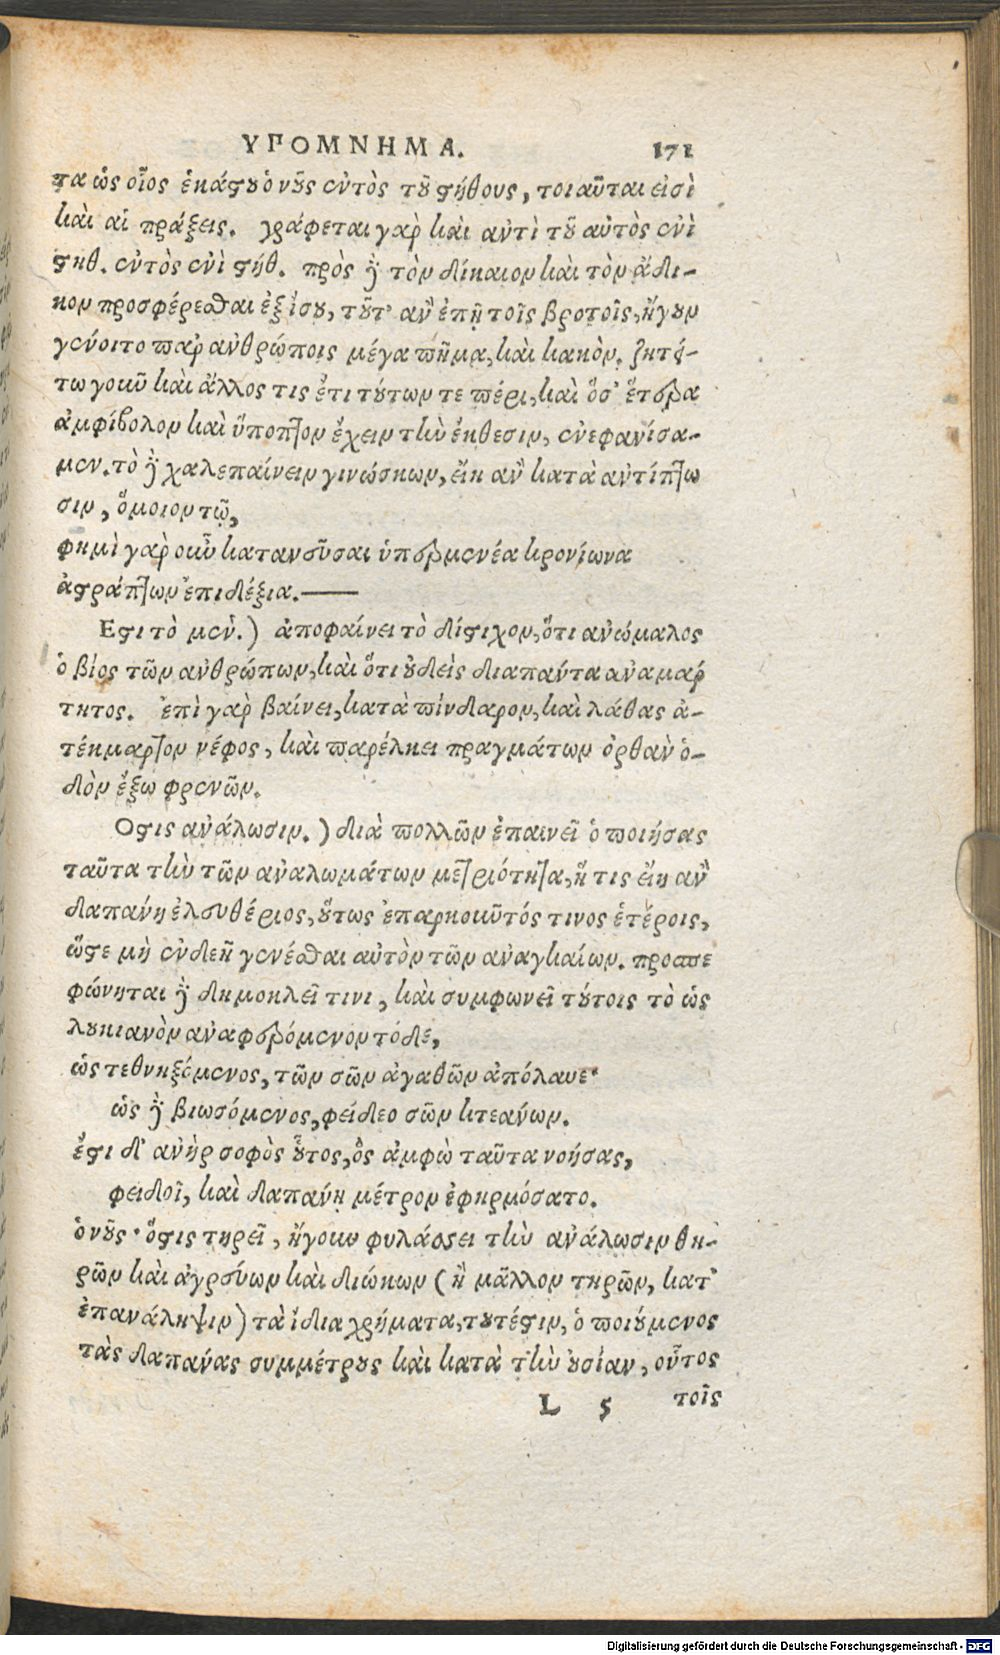 ΥΠΟΜΝΗΜΑ. 171
τα ὡς οἷος ἑκάστου ὁ νοῦς ἐντὸς τοῦ στήθους, τοιαῦται εἰσὶ
καὶ αἱ πράξεις. γράφεται γὰρ καὶ ἀντὶ τοῦ αὐτὸς ἐνὶ
στηθ. ἐντὸς ἐνὶ στήθ. πρὸς δὲ τὸν δίκαιον καὶ τὸν ἄδι-
κον προσφέρεσθαι ἐξίσου, τοῦτ' ἂν ἐπῆ τοῖς βροτοῖς, ἤγουν
γένοιτο παρ' ἀνθρώποις μέγα πῆμα, καὶ κακὸν. ζητεί-
τω γοῦν καὶ ἄλλος τις ἔτι τούτων τε πέρι, καὶ ὅσ' ἕτερα
ἀμφίβολον καὶ ὕποπτον ἔχειν τὴν ἔκθεσιν, ἐνεφανίσα-
μεν. τὸ δὲ χαλεπαίνειν γινώσκων, εἴη ἂν κατὰ ἀντίπτω
σιν, ὅμοιον τῷ,
φημὶ γὰρ οὖν κατανεῦσαι ὑπερμενέα κρονίωνα
ἀστράπτων ἐπιδέξια.——
Εστι τὸ μέν.) ἀποφαίνει τὸ δίστιχον, ὅτι ἀνώμαλος
ὁ βίος τῶν ἀνθρώπων, καὶ ὅτι οὐδεὶς διαπάντα ἀναμάρ
τητος. ἐπὶ γὰρ βαίνει, κατὰ πίνδαρον, καὶ λάθας ἀ-
τέκμαρτον νέφος, καὶ παρέλκει πραγμάτων ὀρθὰν ὁ-
δὸν ἔξω φρενῶν.
Οστις ἀνάλωσιν.) διὰ πολλῶν ἐπαινεῖ ὁ ποιήσας
ταῦτα τὴν τῶν ἀναλωμάτων μετριότητα, ἥ τις εἴη ἂν
δαπάνη ἐλευθέριος, οὕτως ἐπαρκοῦντός τινος ἑτέροις,
ὥστε μὴ ἐνδεῆ γενέσθαι αὐτὸν τῶν ἀναγκαίων. προσπε
φώνηται δὲ δημοκλεῖ τινι, καὶ συμφωνεῖ τούτοις τὸ ὡς
λουκιανὸν ἀναφερόμενον τόδε,
ὡς τεθνηξόμενος, τῶν σῶν ἀγαθῶν ἀπόλαυε·
ὡς δὲ βιωσόμενος, φείδεο σῶν κτεάνων.
ἔστι δ' ἀνὴρ σοφὸς οὗτος, ὃς ἄμφω ταῦτα νοήσας,
φειδοῖ, καὶ δαπάνη μέτρον ἐφηρμόσατο.
ὁ νοῦς· ὅστις τηρεῖ, ἤγουν φυλάσσει τὴν ἀνάλωσιν θη-
ρῶν καὶ ἀγρεύων καὶ διώκων (ἢ μᾶλλον τηρῶν, κατ'
ἐπανάληψιν) τὰ ἴδια χρήματα, τουτέστιν, ὁ ποιούμενος
τὰς δαπάνας συμμέτρους καὶ κατὰ τὴν οὐσίαν, οὗτος
L 5 τοῖς
Digitalisierung gefördert durch die Deutsche Forschungsgemeinschaft - DFG